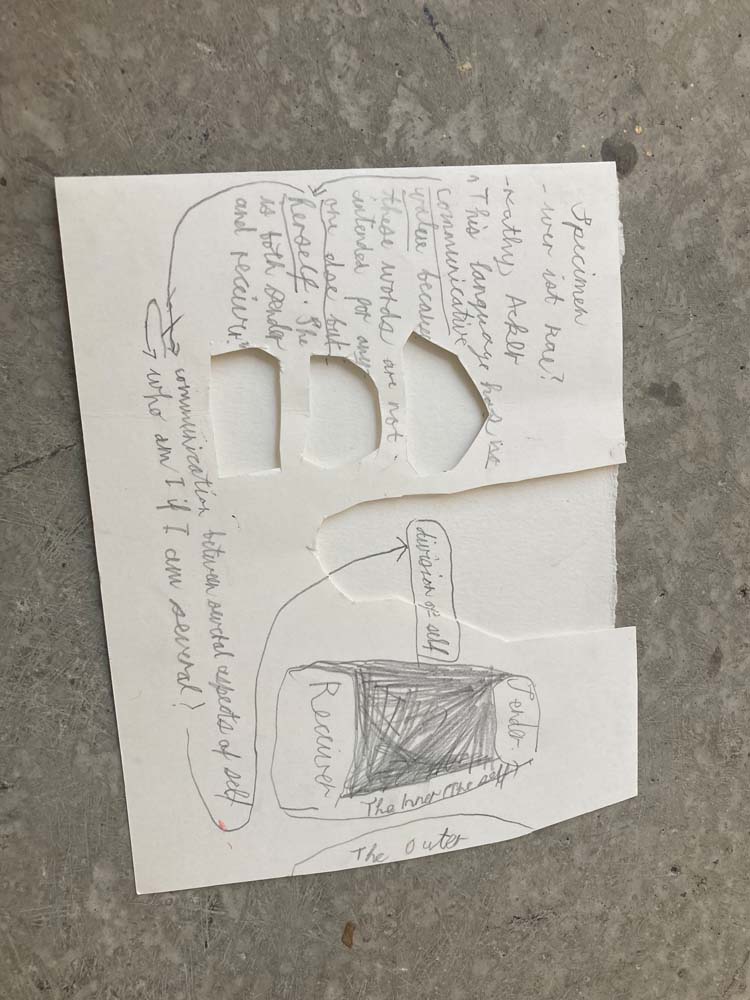 Specimen
- wer ist
- Kathy Acker
"This language has no
communicative
because
these words are not
intended for any
one else but
herself. She
is both sender
and reciever."
→ communication between several aspects of self
→ who am I if I am several?
division of self
Sender
Reciever
The Inner / The self
The Outer